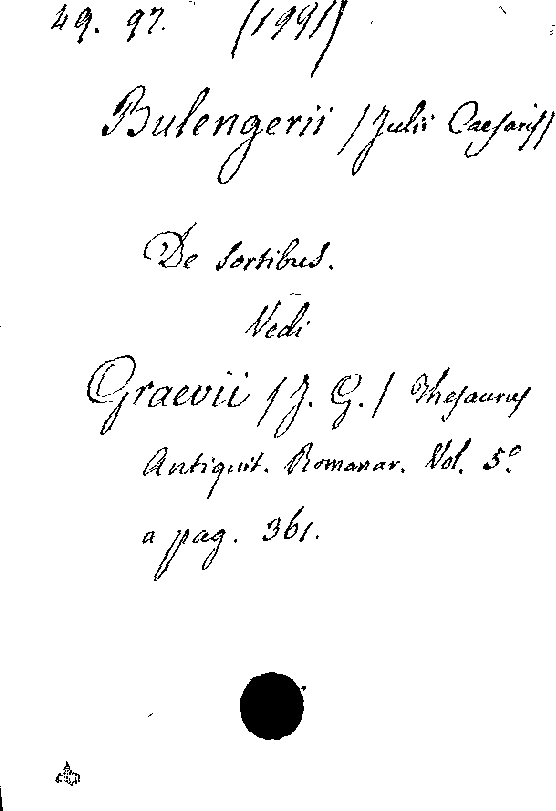 49. 97. (1991)
Bulengerii /Julii Caesaris/
De sortibus.
Vedi
Graevii /J. G./ Thesaurus
Antiquit. Romanar. Vol. 5º.
a pag. 361.